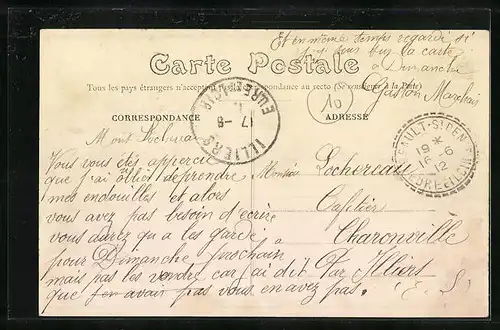 Et en même temps regardé si
la carte
à Dimanche
Gaston Marchais
Carte Postale
Tous les pays étrangers n'acceptent pas la correspondance au recto (Se renseigner à la Poste)
CORRESPONDANCE
ADRESSE
10
ILLIERS
EURE-ET-LOIR
17 -8
19 *
16-6
12
EURE-ET-LOIR
Mont Lochereau
Vous vous êtes appercie
que j'ai oublié de prendre
mes endouilles et alors
vous avez pas besoin d'ecrire
vous aurez qu a les garde
pour Dimanche prochain
mais pas les vendre car j'ai dit
que j'en avais pas vous en avez pas.
Monsieur Lochereau
Cafetier
Charonville
Par Illiers
(E. L)